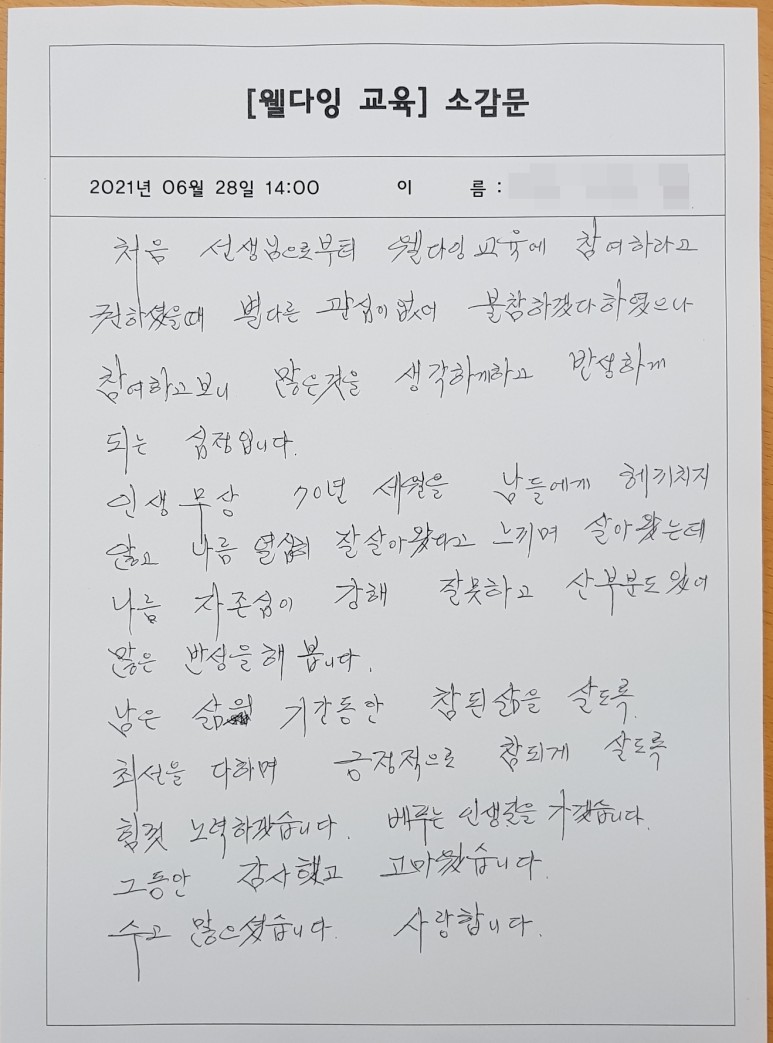 [웰다잉 교육] 소감문
2021년 06월 28일 14:00 이 름 :
처음 선생님으로부터 웰다잉 교육에 참여하라고
권하셨을때 별다른 관심이 없어 불참하겠다 하였으나
참여하고보니 많은것을 생각하게하고 반성하게
되는 심정입니다.
인생무상 70년 세월을 남들에게 헤끼치지
않고 나름 열심히 잘살아왔다고 느끼며 살아왔는데
나름 자존심이 강해 잘못하고 산부분도 있어
많은 반성을 해 봅니다.
남은 삶의 기간동안 참된삶을 살도록
최선을 다하며 긍정적으로 참되게 살도록
힘껏 노력하겠습니다. 베푸는 인생길을 가겠습니다.
그동안 감사했고 고마웠습니다.
수고 많으셨습니다. 사랑합니다.